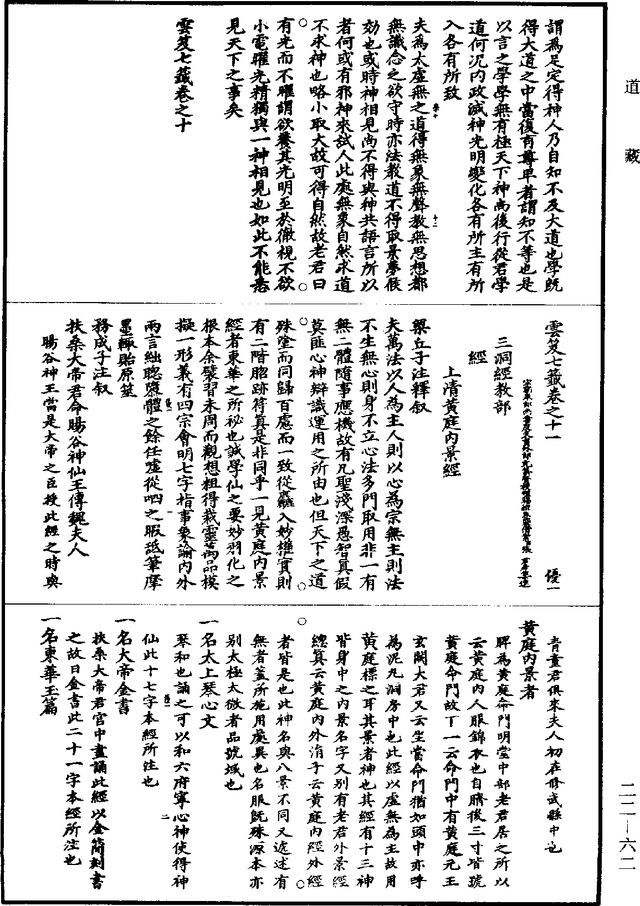 道藏
謂爲足定得神人乃自知不及大道也學既
得大道之中當復有尊卑者謂知不等也是
以言之學學無有極天下神尚復行從君學
道何况內政滅神光明變化各有所主有所
入各有所致
夫為太虛無之道得無象無聲教無思想都
無識念之欲守時亦法教道不得取景夢候
効也或時神相見尚不得與神共語言所以
者何或有邪神來試人此處無象自然求道
不求神也略小取大故可得自然故老君曰
有光而不曜謂欲養其光明至於微視不欲
小電曜光精獨與一神相見也如此不能悉
見天下之事矣
雲笈七籤卷之十
雲笈七籤卷之十一 優一
三洞經教部
經
上清黃庭內景經
梁丘子注釋叙
夫萬法以人為主人則以心為宗無主則法
不生無心則身不立心法多門取用非一有
無二體隨事應機故有凡聖淺深愚智真假
莫匪心神辯識運用之所由也但天下之道
殊塗而同歸百慮而一致從麤入妙權實則
有二階陷跡符真是非同乎一見黃庭內景
經者東華之所祕也誠學仙之要妙羽化之
根本余嬖習未周而觀想粗得裁靈萬品模
擬一形義有四宗會明七字指事象諭內外
兩言絀聰隳體之餘任噓從呬之暇砥筆摩
墨輒貽原筮
務成子注叙
扶桑大帝君命暘谷神仙王傳魏夫人
暘谷神王當是大帝之臣授此經之時與
青童君俱來夫人初在修武縣中也
黃庭內景者
脾為黃庭命門明堂中部老君居之所以
云黃庭內人服錦衣也自臍後三寸皆號
黃庭命門故下一云命門中有黃庭元王
玄闕大君又云坐當命門猶如頭中亦呼
為泥丸洞房中也此經以虛無為主故用
黃庭標之耳其景者神也其經有十三神
皆身中之內景名字又別有老君外景經
總真云黃庭內外涓子云黃庭內經外經
者皆是也此神名與八景不同又述述有
無者蓋所施用處異也名服既殊源本亦
別太極太微者品號域也
一名太上琴心文
琴和也誦之可以和六府寧心神使得神
仙此十七字本經所注也
一名大帝金書
扶桑大帝君宮中盡誦此經以金簡刻書
之故曰金書此二十一字本經所注也
一名東華玉篇
二二—六二